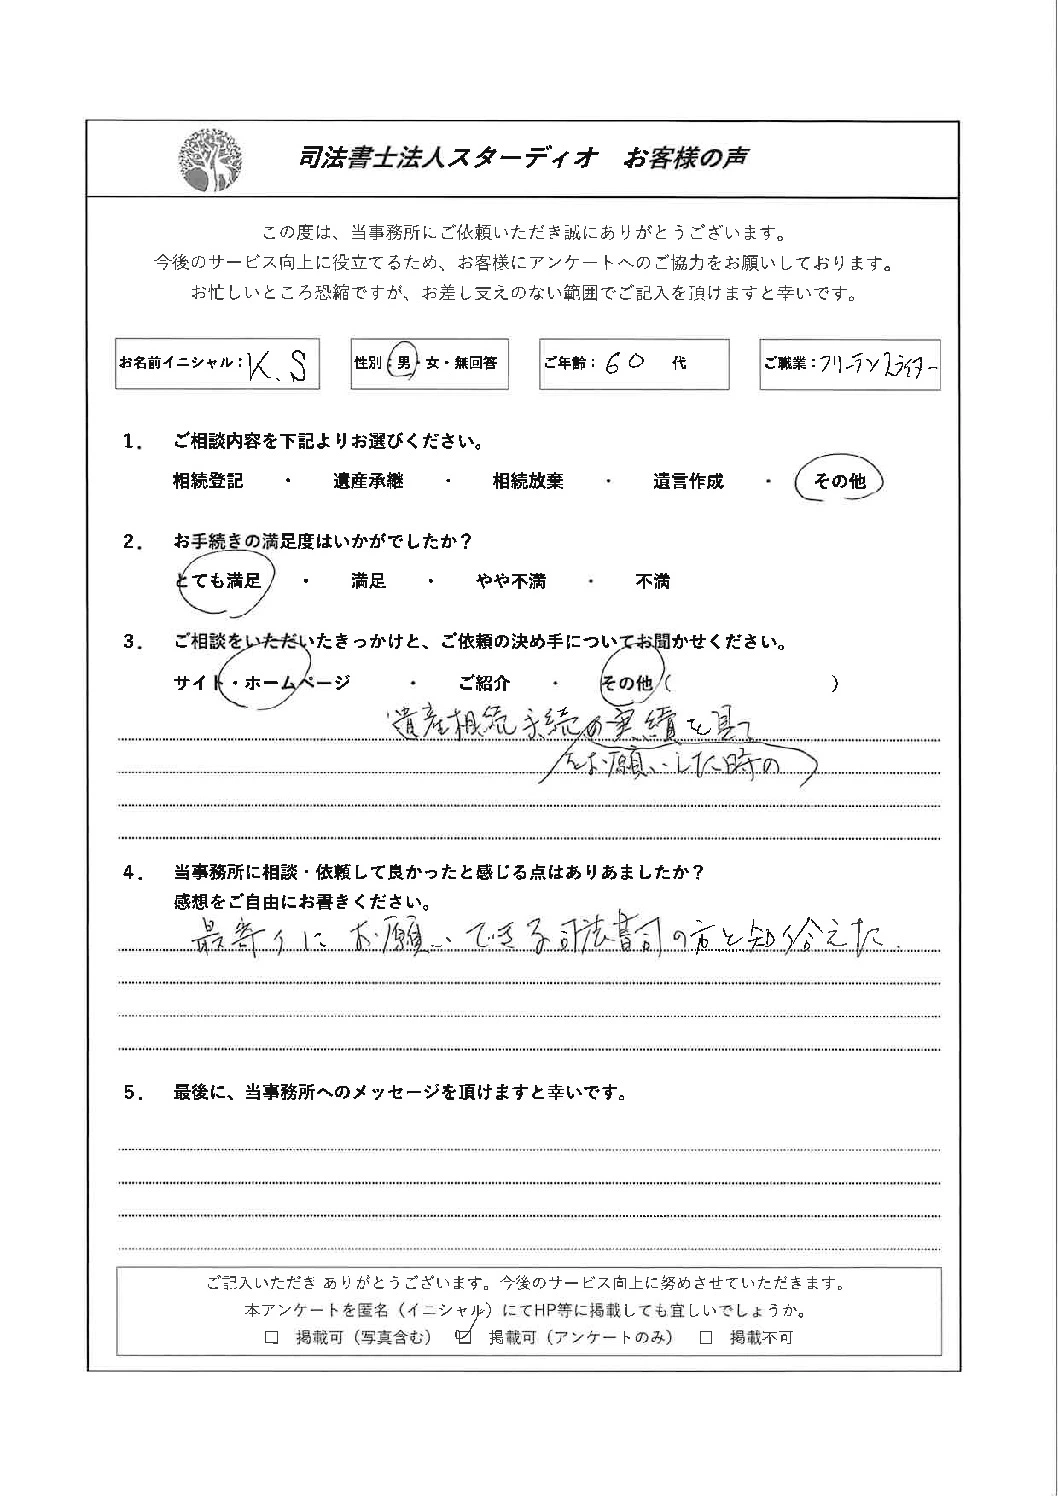 司法書士法人スターディオ お客様の声
この度は、当事務所にご依頼いただき誠にありがとうございます。
今後のサービス向上に役立てるため、お客様にアンケートへのご協力をお願いしております。
お忙しいところ恐縮ですが、お差し支えのない範囲でご記入を頂けますと幸いです。
お名前イニシャル：K.S 性別：男・女・無回答 ご年齢：60 代 ご職業：フリーランスライター
1. ご相談内容を下記よりお選びください。
相続登記 ・ 遺産承継 ・ 相続放棄 ・ 遺言作成 ・ その他
2. お手続きの満足度はいかがでしたか？
とても満足 ・ 満足 ・ やや不満 ・ 不満
3. ご相談をいただいたきっかけと、ご依頼の決め手についてお聞かせください。
サイト・ホームページ ・ ご紹介 ・ その他（ ）
遺産相続手続の実績を見て
をお願いした時の
4. 当事務所に相談・依頼して良かったと感じる点はありあましたか？
感想をご自由にお書きください。
最寄りにお願いできる司法書司の方と知り合えた
5. 最後に、当事務所へのメッセージを頂けますと幸いです。
ご記入いただき ありがとうございます。今後のサービス向上に努めさせていただきます。
本アンケートを匿名（イニシャル）にてHP等に掲載しても宜しいでしょうか。
□ 掲載可（写真含む） ☑ 掲載可（アンケートのみ） □ 掲載不可